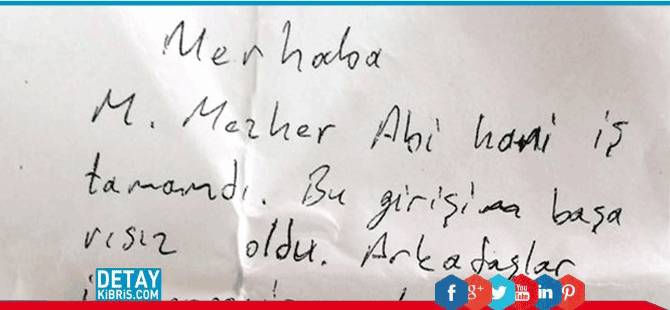 Merhaba
M. Mazher Abi hani iş
tamamdı. Bu girişim başa
rısız oldu. Arkadaşlar
DETAY
KIBRIS.COM
f g+ You Tube in p